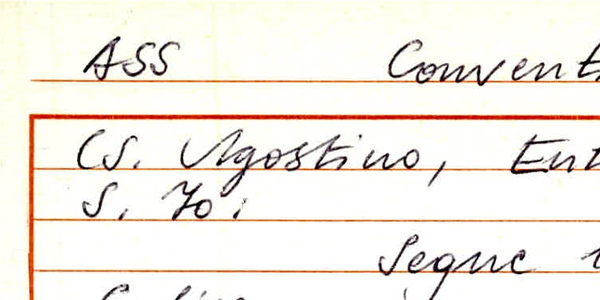 ASS Convent
(S. Agostino, Ent
S. Jo:
Segue